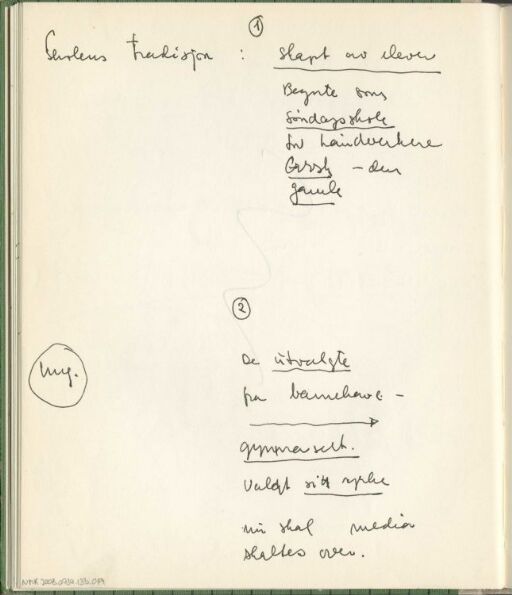 ①
Skolens tradisjon : skapt av elever
Begynte som
søndagsskole
for håndverkere
Grosch – den
gamle
②
De utvalgte
ung.
fra barnehave –
gymnas
valgt sitt yrke
skal media
skaltes over.
NMK 2005.0739.133.019